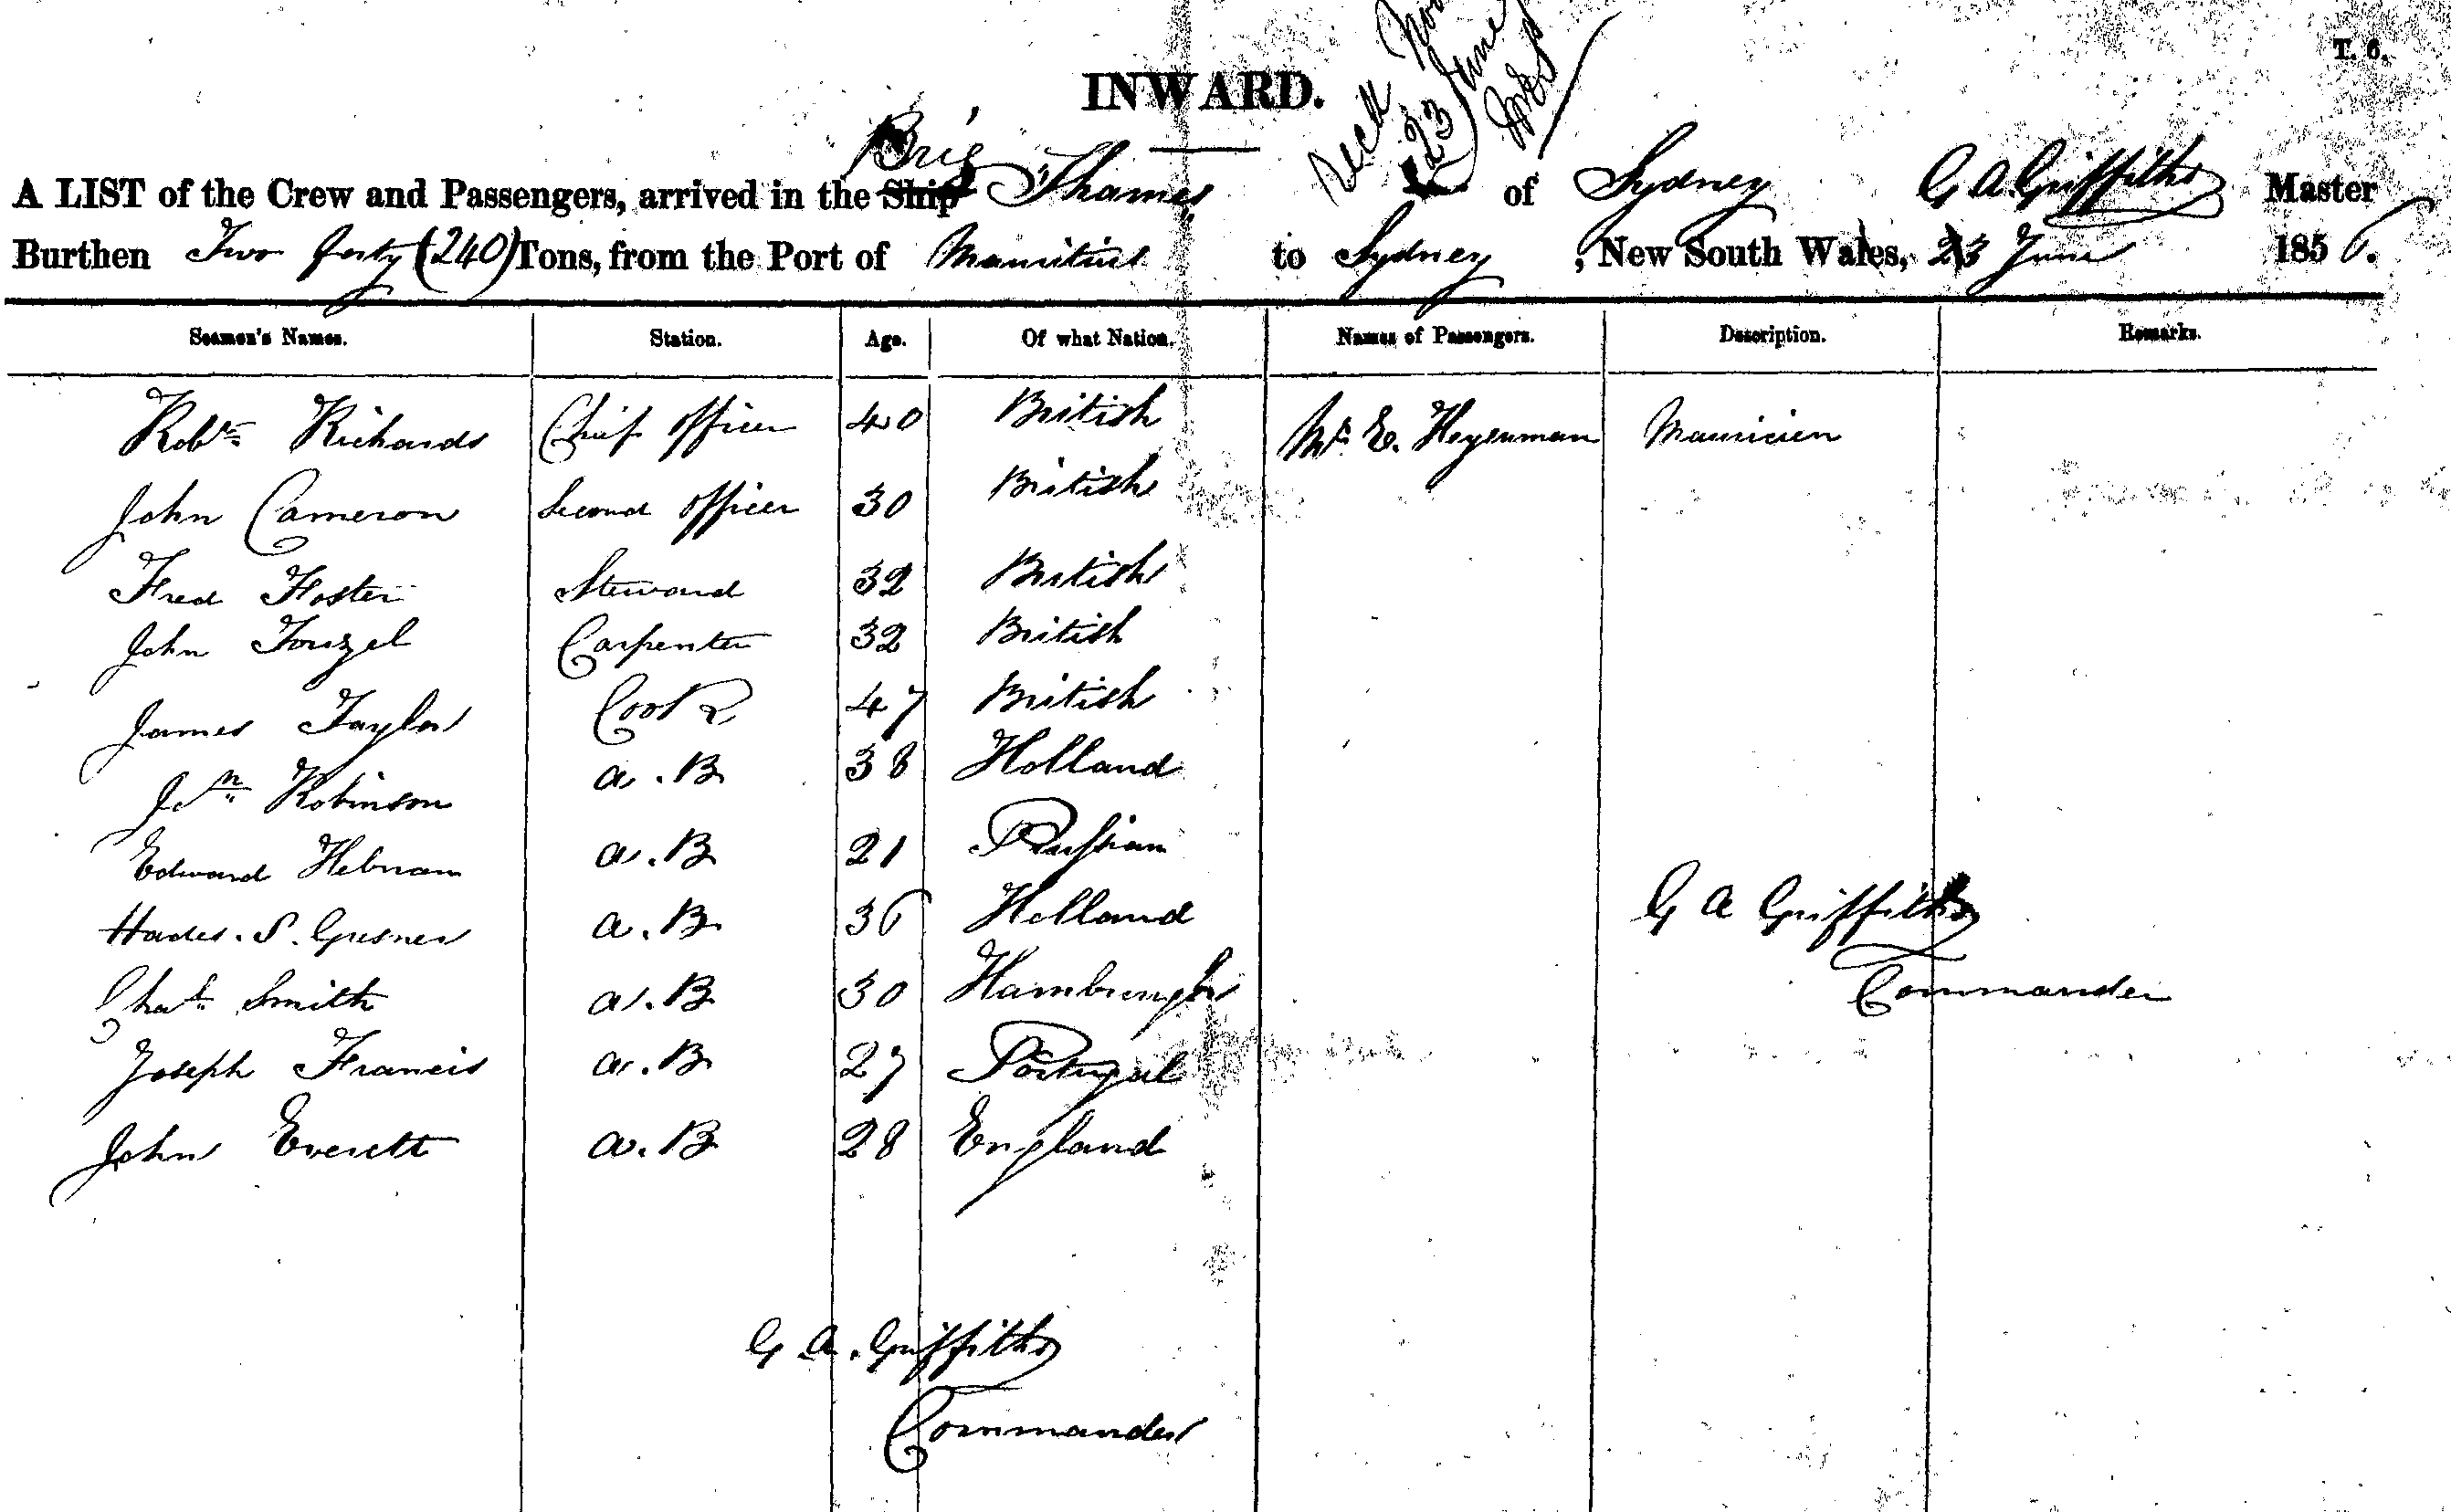 T. 6.
INWARD.
23 June
Brig
A LIST of the Crew and Passengers, arrived in the Ship Thames of Sydney G A Griffiths Master
Burthen Two forty (240) Tons, from the Port of Mauritius to Sydney, New South Wales, 23 June 1856.
Seamen's Names. Station. Age. Of what Nation. Names of Passengers. Description. Remarks.
Robt Richards Chief Officer 40 British Mr E. Heyenman Mauricien
John Cameron Second Officer 30 British
Fred Foster Steward 32 British
John Touzel Carpenter 32 British
James Taylor Cook 47 British
Jn Robinson A.B 38 Holland
Edward Hebnam A.B 21
S. Gresner A.B 36 Holland
Chas Smith A.B 30 Hamburgh
Joseph Francis A.B 27 Portugal
John Everett A.B 28 England
G A Griffiths
Commander
G A. Griffiths
Commander